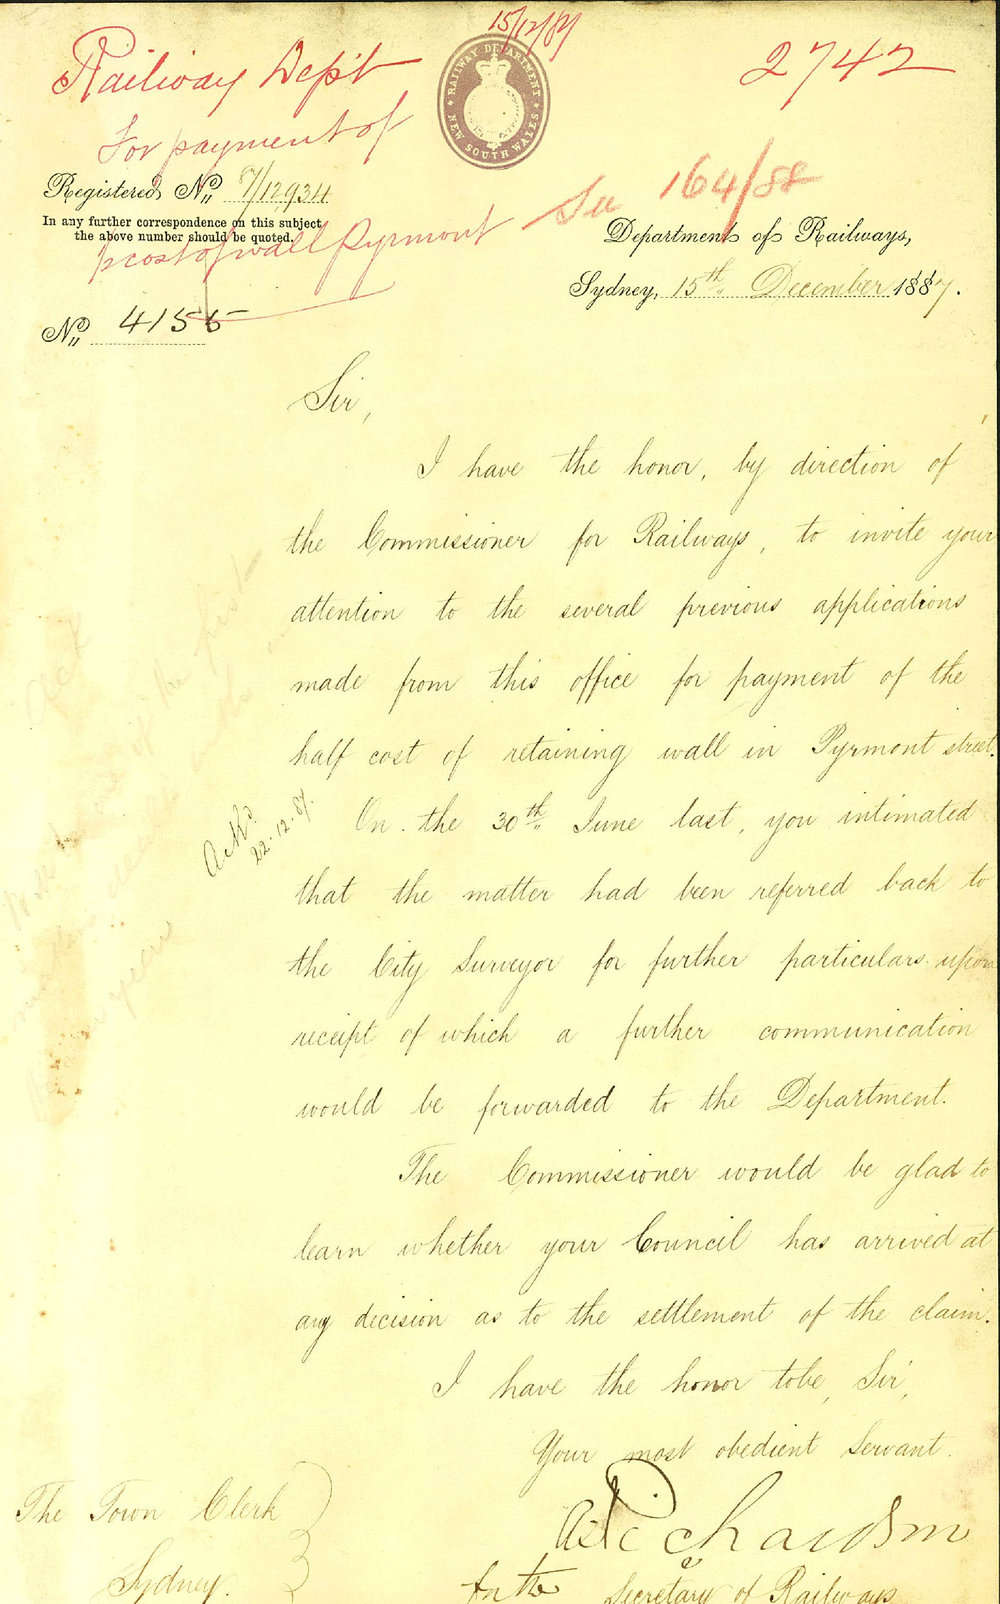 15/12/87
Railway Dep't
2742
For payment of
RAILWAY DEPARTMENT
NEW SOUTH WALES
Registered No. 87/12934
See 164/88
In any further correspondence on this subject
the above number should be quoted.
cost of wall Pyrmont
Department of Railways,
Sydney, 15th December 1887.
No. 4155
Sir,
I have the honor, by direction of
the Commissioner for Railways, to invite your
attention to the several previous applications
made from this office for payment of the
half cost of retaining wall in Pyrmont street.
Ackd.
22.12.87.
On the 30th June last, you intimated
that the matter had been referred back to
the City Surveyor for further particulars upon
receipt of which a further communication
would be forwarded to the Department.
The Commissioner would be glad to
learn whether your Council has arrived at
any decision as to the settlement of the claim.
I have the honor to be, Sir,
Your most obedient Servant.
Richardson
For the Secretary of Railways
The Town Clerk
Sydney.